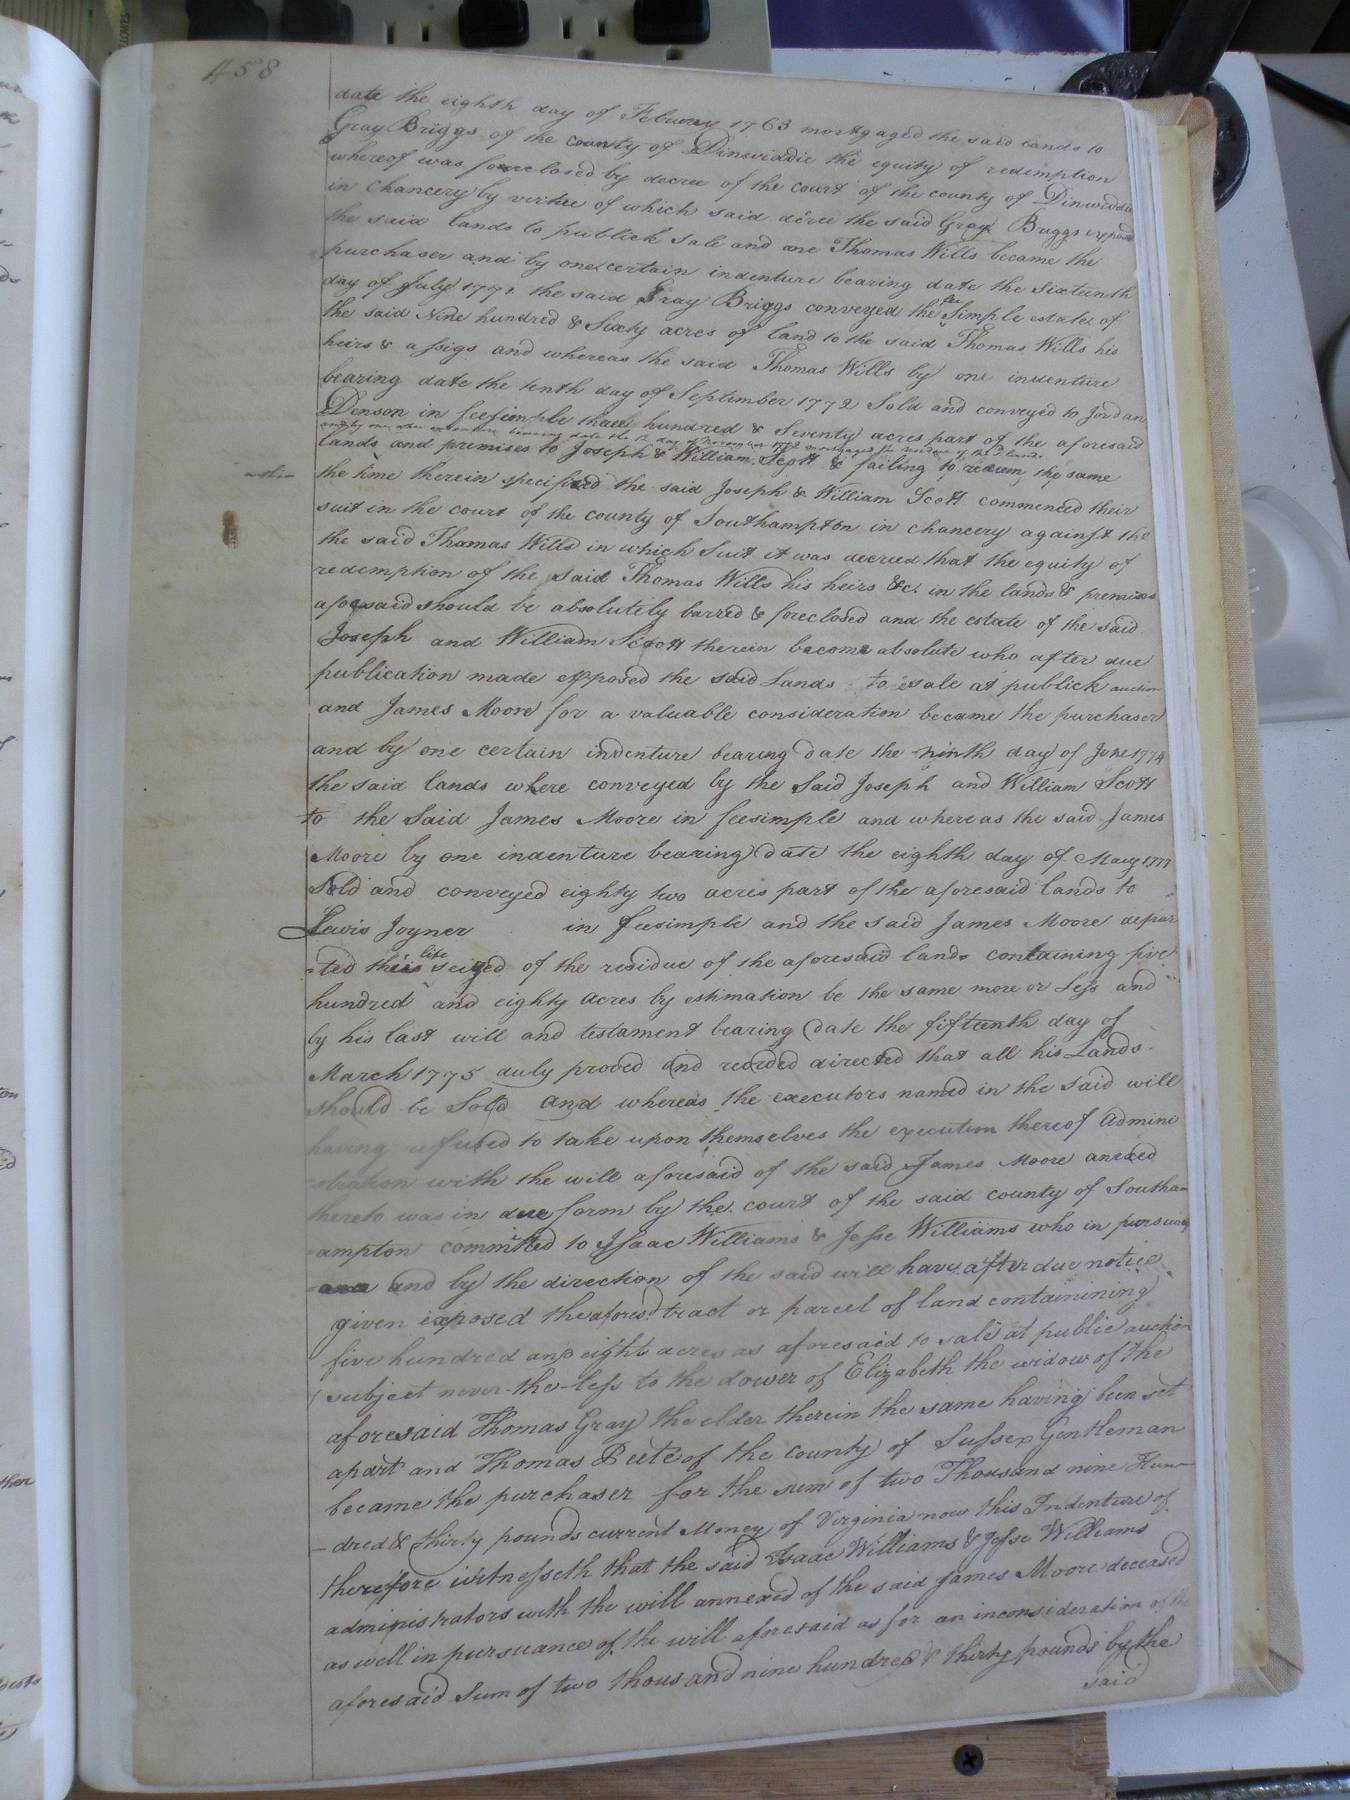 458
date the eighth day of Febuery 1763 mortgaged the said lands to
Gray Briggs of the county of Dinwiddie the equity of redemption
whereof was foreclosed by decree of the court of the county of Dinwiddie
in chancery by virtue of which said dcree the said Gray Briggs exposd
the said lands to publick sale and one Thomas Wills became the
purchaser and by one certain indenture bearing date the Sixteenth
day of July 1771. the said Gray Briggs conveyed the fee Simple estate of
the said Nine hundred & Sixty acres of land to the said Thomas Wills his
heirs & assigs and whereas the said Thomas Wills by one indenture
bearing date the tenth day of September 1772 Sold and conveyed to Jordan
Denson in feesimple three hundred & Seventy acres part of the aforesaid
and by one other indenture bearing date the 12 day of November 1772 mortgaged the residue of the sd. lands
lands and premises to Joseph & William Scott & failing to redeem the same
within
the time therein specified the said Joseph & William Scott commenced their
suit in the court of the county of Southampton in chancery against the
the said Thomas Wills in which Suit it was decreed that the equity of
redemption of the said Thomas Wills his heirs &c. in the lands & premises
aforesaid should be absolutely barred & foreclosed and the estate of the said
Joseph and William Scott therein become absolute who after due
publication made exposed the said Lands to sale at publick auction
and James Moore for a valuable consideration became the purchaser
and by one certain indenture bearing date the ninth day of June 1774
the said lands where conveyed by the Said Joseph and William Scott
to the Said James Moore in feesimple and whereas the said James
Moore by one indenture bearing date the eighth day of May 1777
Sold and conveyed eighty two acres part of the aforesaid lands to
Lewis Joyner in feesimple and the said James Moore depar
=ted this life seized of the residue of the aforesaid lands containing five
hundred and eighty acres by estimation be the same more or less and
by his last will and testament bearing date the fifteenth day of
March 1775 duly proved and recorded directed that all his Lands
should be Sold and whereas the executors named in the said will
having refused to take upon themselves the execution thereof Admini
=stration with the will aforesaid of the said James Moore anexed
thereto was in due form by the court of the said county of Southa=
=ampton committed to Isaac Williams & Jesse Williams who in pursu
and by the direction of the said will have after due notice
given exposed the aforesd. tract or parcel of land containining
five hundred and eight acres as aforesaid to sale at public auction
subject never-the-less to the dower of Elizabeth the widow of The
aforesaid Thomas Gray the elder therein the same having been set
apart and Thomas Peete of the county of Sussex Gentleman
became the purchaser for the sum of two Thousand nine Hun=
-dred & thirty pounds current Money of Virginia now this Indenture of
therefore witnesseth that the said Isaac Williams & Jesse Williams
administrators with the will annexed of the said James Moore deceased
as well in pursuance of the will aforesaid as for an inconsideration of the
aforesaid Sum of two thousand nine hundred & thirty pounds by the
said